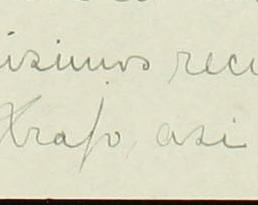 isimos reci
Xrafo, asi